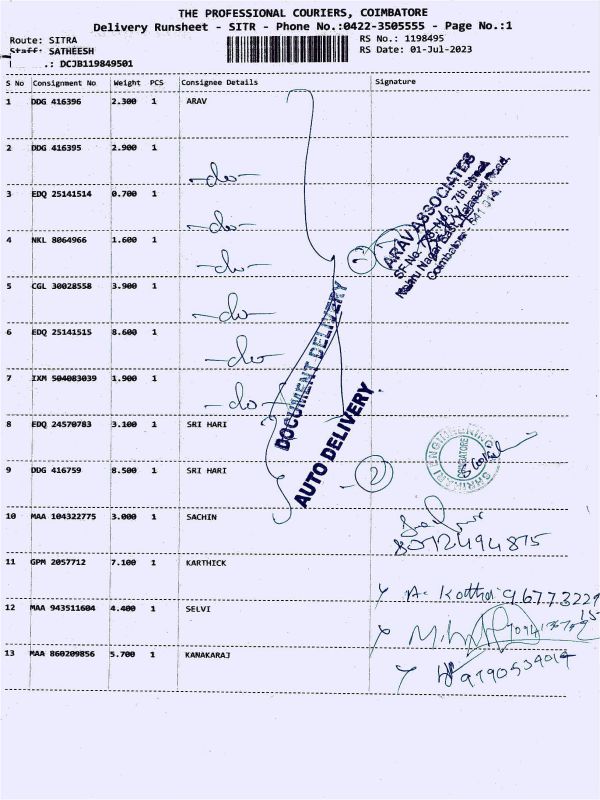 THE PROFESSIONAL COURIERS, COIMBATORE
Delivery Runsheet - SITR - Phone No.:0422-3505555 - Page No.:1
Route: SITRA RS No.: 1198495
Staff: SATHEESH RS Date: 01-Jul-2023
.: DCJB119849501
S No Consignment No Weight PCS Consignee Details Signature
1 DDG 416396 2.300 1 ARAV
2 DDG 416395 2.900 1
-do-
3 EDQ 25141514 0.700 1
-do-
4 NKL 8064966 1.600 1
-do-
5 CGL 30028558 3.900 1
-do-
6 EDQ 25141515 8.600 1
-do-
7 IXM 504083039 1.900 1
-do-
ARAV ASSOCIATES
7th Street
Nehru Nagar East, Kalapatti Road,
Coimbatore
DOCUMENT DELIVERY
AUTO DELIVERY
8 EDQ 24570783 3.100 1 SRI HARI
9 DDG 416759 8.500 1 SRI HARI
2
SRIHARI ENGINEERING
COIMBATORE
10 MAA 104322775 3.000 1 SACHIN
8072494815
11 GPM 2057712 7.100 1 KARTHICK
12 MAA 943511604 4.400 1 SELVI
13 MAA 860209856 5.700 1 KANAKARAJ